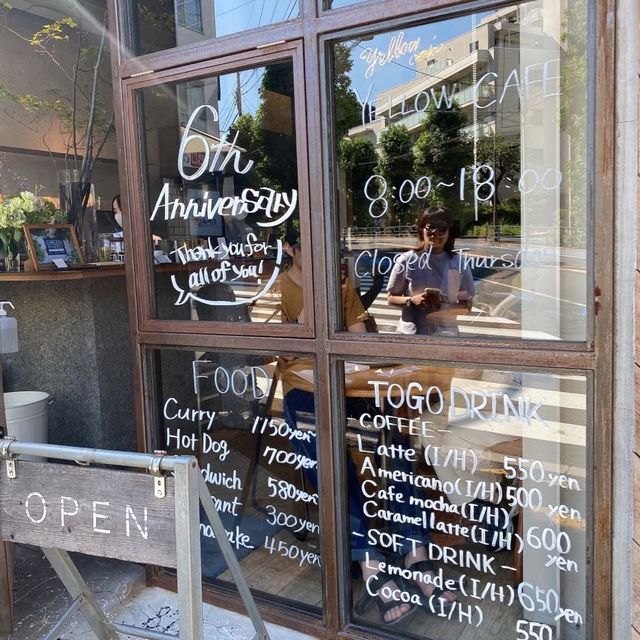 Yellow cafe
YELLOW CAFE
6th
Anniversary
8:00~18:00
Thank you for
all of you!
Closed Thursday
GREEN
FOOD
Curry 1150yen
Hot Dog 700yen
580yen
300yen
450yen
TOGO DRINK
-COFFEE-
Latte (I/H) 550yen
Americano (I/H) 500 yen
Cafe mocha (I/H)
Caramel latte (I/H) 600
yen
-SOFT DRINK-
Lemonade (I/H) 650yen
Cocoa (I/H)
550
OPEN